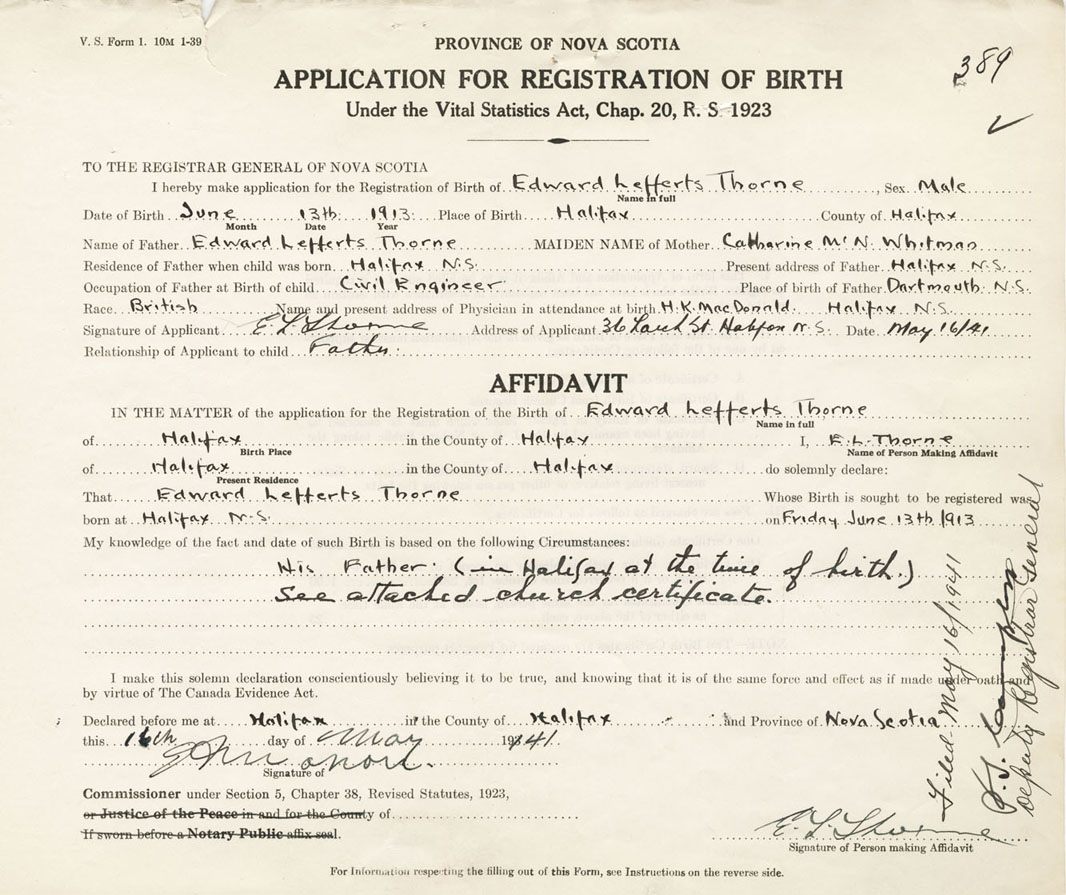 V. S. Form 1. 10M 1-39
PROVINCE OF NOVA SCOTIA
389
APPLICATION FOR REGISTRATION OF BIRTH
Under the Vital Statistics Act, Chap. 20, R. S. 1923
TO THE REGISTRAR GENERAL OF NOVA SCOTIA
I hereby make application for the Registration of Birth of Edward Lefferts Thorne, Sex Male
Name in full
Date of Birth June 13th 1913 Place of Birth Halifax County of Halifax
Month Date Year
Name of Father Edward Lefferts Thorne MAIDEN NAME of Mother Catharine McN. Whitman
Residence of Father when child was born Halifax N.S. Present address of Father Halifax N.S.
Occupation of Father at Birth of child Civil Engineer Place of birth of Father Dartmouth N.S.
Race British Name and present address of Physician in attendance at birth H.K. MacDonald. Halifax N.S.
Signature of Applicant E L Thorne Address of Applicant 36 St. Halifax N.S. Date May 16/41
Relationship of Applicant to child Father
AFFIDAVIT
IN THE MATTER of the application for the Registration of the Birth of Edward Lefferts Thorne
Name in full
of Halifax in the County of Halifax I, E.L. Thorne
Birth Place Name of Person Making Affidavit
of Halifax in the County of Halifax do solemnly declare:
Present Residence
That Edward Lefferts Thorne Whose Birth is sought to be registered was
born at Halifax N.S. on Friday June 13th 1913
My knowledge of the fact and date of such Birth is based on the following Circumstances:
His Father (in Halifax at the time of birth.)
See attached church certificate.
I make this solemn declaration conscientiously believing it to be true, and knowing that it is of the same force and effect as if made under oath and
by virtue of The Canada Evidence Act.
Declared before me at Halifax in the County of Halifax and Province of Nova Scotia
this 16th day of May 1941.
Signature of
Commissioner under Section 5, Chapter 38, Revised Statutes, 1923,
or Justice of the Peace in and for the County of
If sworn before a Notary Public affix seal.
E. L. Thorne
Signature of Person making Affidavit
Filed May 16/1941
Deputy Registrar General
For Information respecting the filling out of this Form, see Instructions on the reverse side.